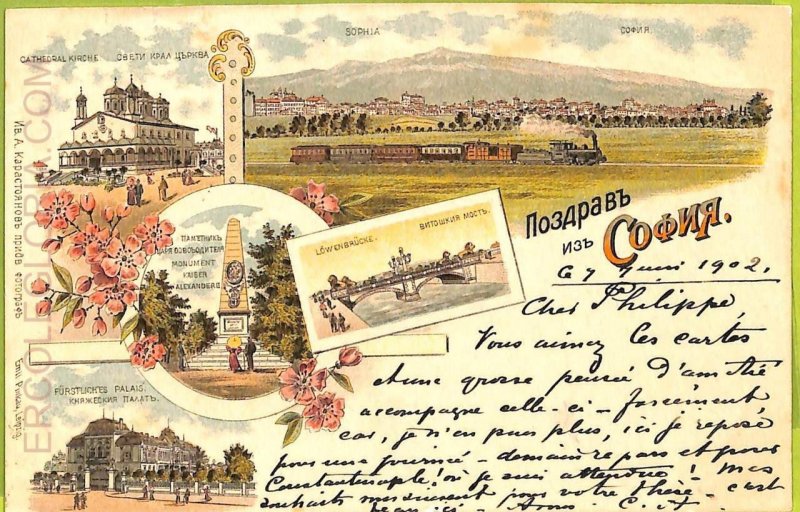 SOPHIA
СОФИЯ.
CATHEDRAL KIRCHE СВЕТИ КРАЛ ЦЪРКВА
ПАМЕТНИКЪ
ЦАРЯ ОСВОБОДИТЕЛЯ
MONUMENT
KAISER
ALEXANDER II
LÖWENBRÜCKE.
ВИТОШКИЯ МОСТЪ.
Поздравъ
изъ София.
FÜRSTLICHES PALAIS.
КНЯЖЕСКИЯ ПАЛАТЪ.
Ив. А. Карастояновъ придв. фотографъ
Emil Pinkau, Leipzig
ERCOLEGLORIA.COM
Ce 7 Juin 1902.
Cher Philippe,
Vous aimez les cartes
une grosse pensée d'amitié
accompagne celle-ci - forcément
car, je n'en puis plus, ici je repose
pour une journée - demain repars et pour
Constantinople! où je suis attendue! Mes
souhaits pour votre thèse - c'est
beau